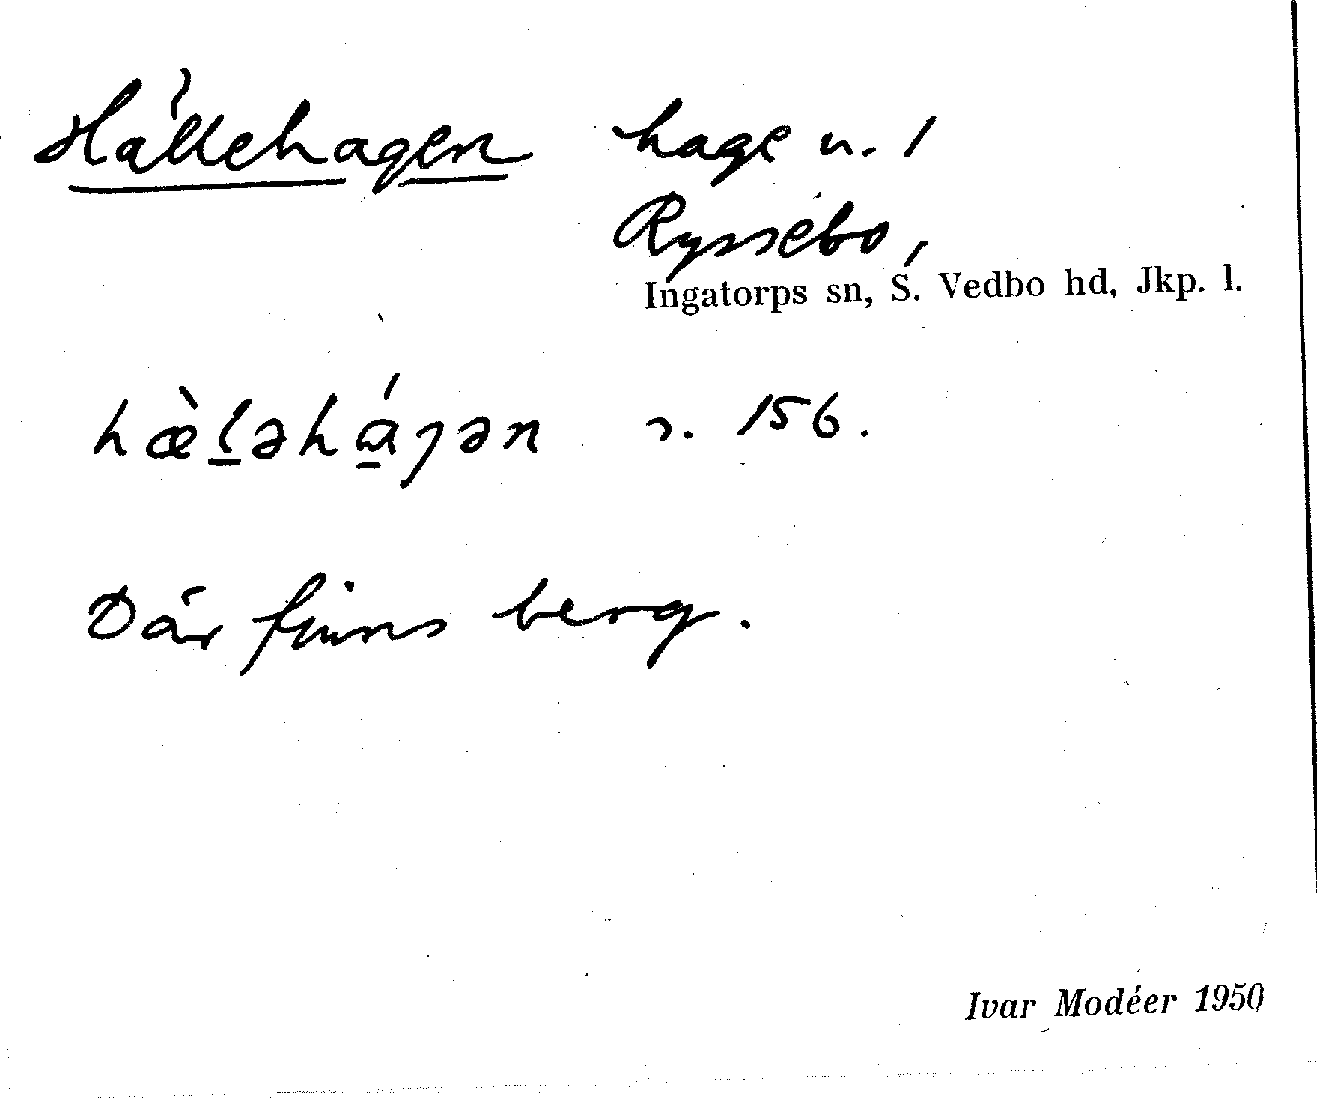 Hällehagen hage u. /
Ryssebo,
Ingatorps sn, S. Vedbo hd, Jkp. l.
hæ̀l̲əhá̲ɡən s. 156.
Där finns berg.
Ivar Modéer 1950